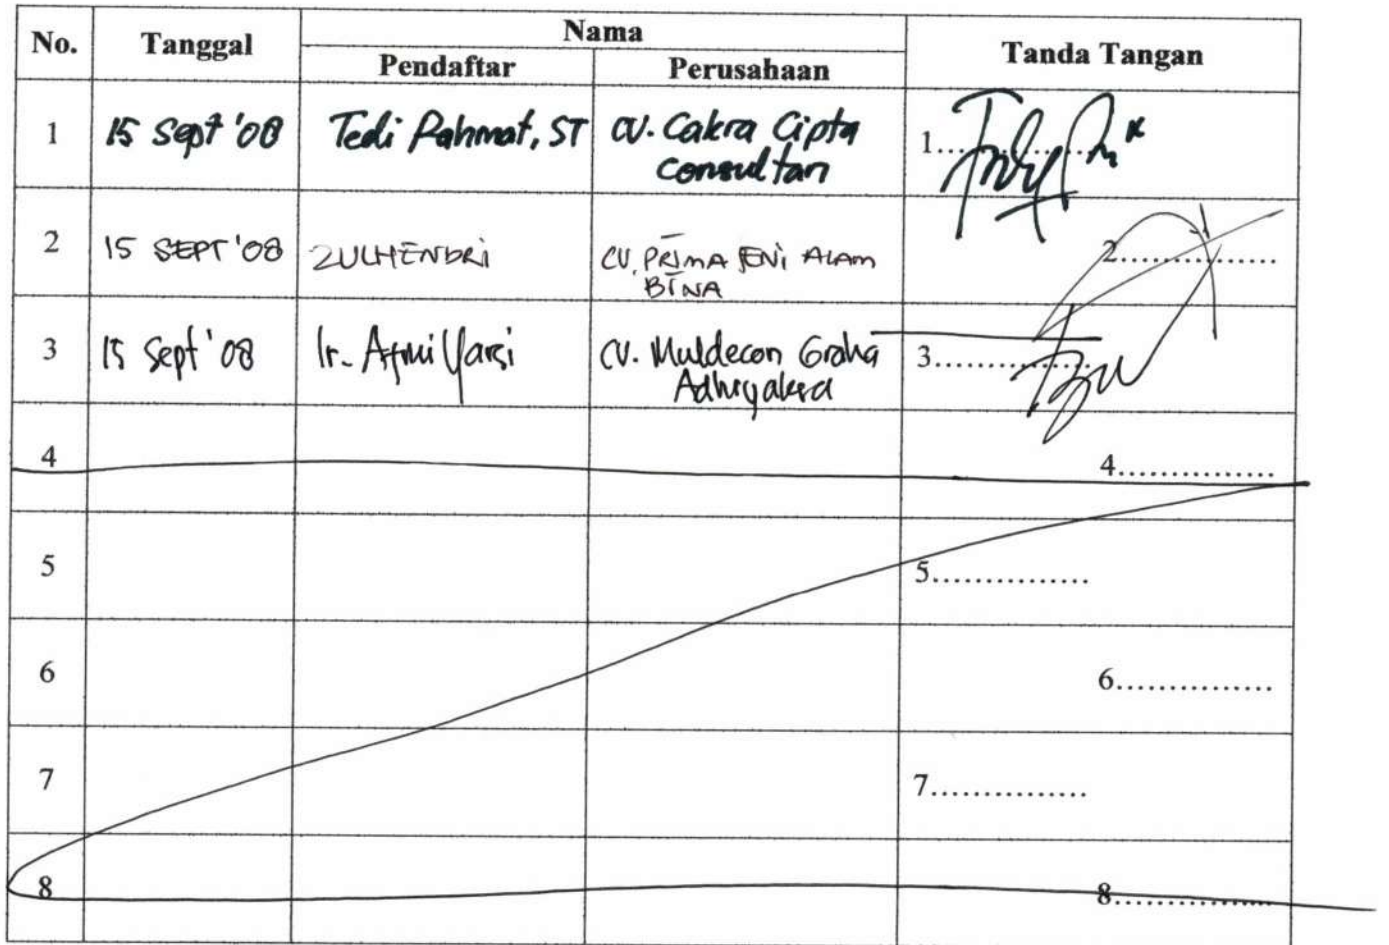 No. Tanggal Nama Tanda Tangan
Pendaftar Perusahaan
1 15 Sept '08 Tedi Rahmat, ST CV. Cakra Cipta 1...............
Consultan
2 15 SEPT '08 ZULHENDRI CV. PRIMA JENI ALAM 2...............
BINA
3 15 Sept '08 Ir. Yarsi CV. Muldecon Graha 3...............
Adhyaksa
4 4...............
5 5...............
6 6...............
7 7...............
8 8...............